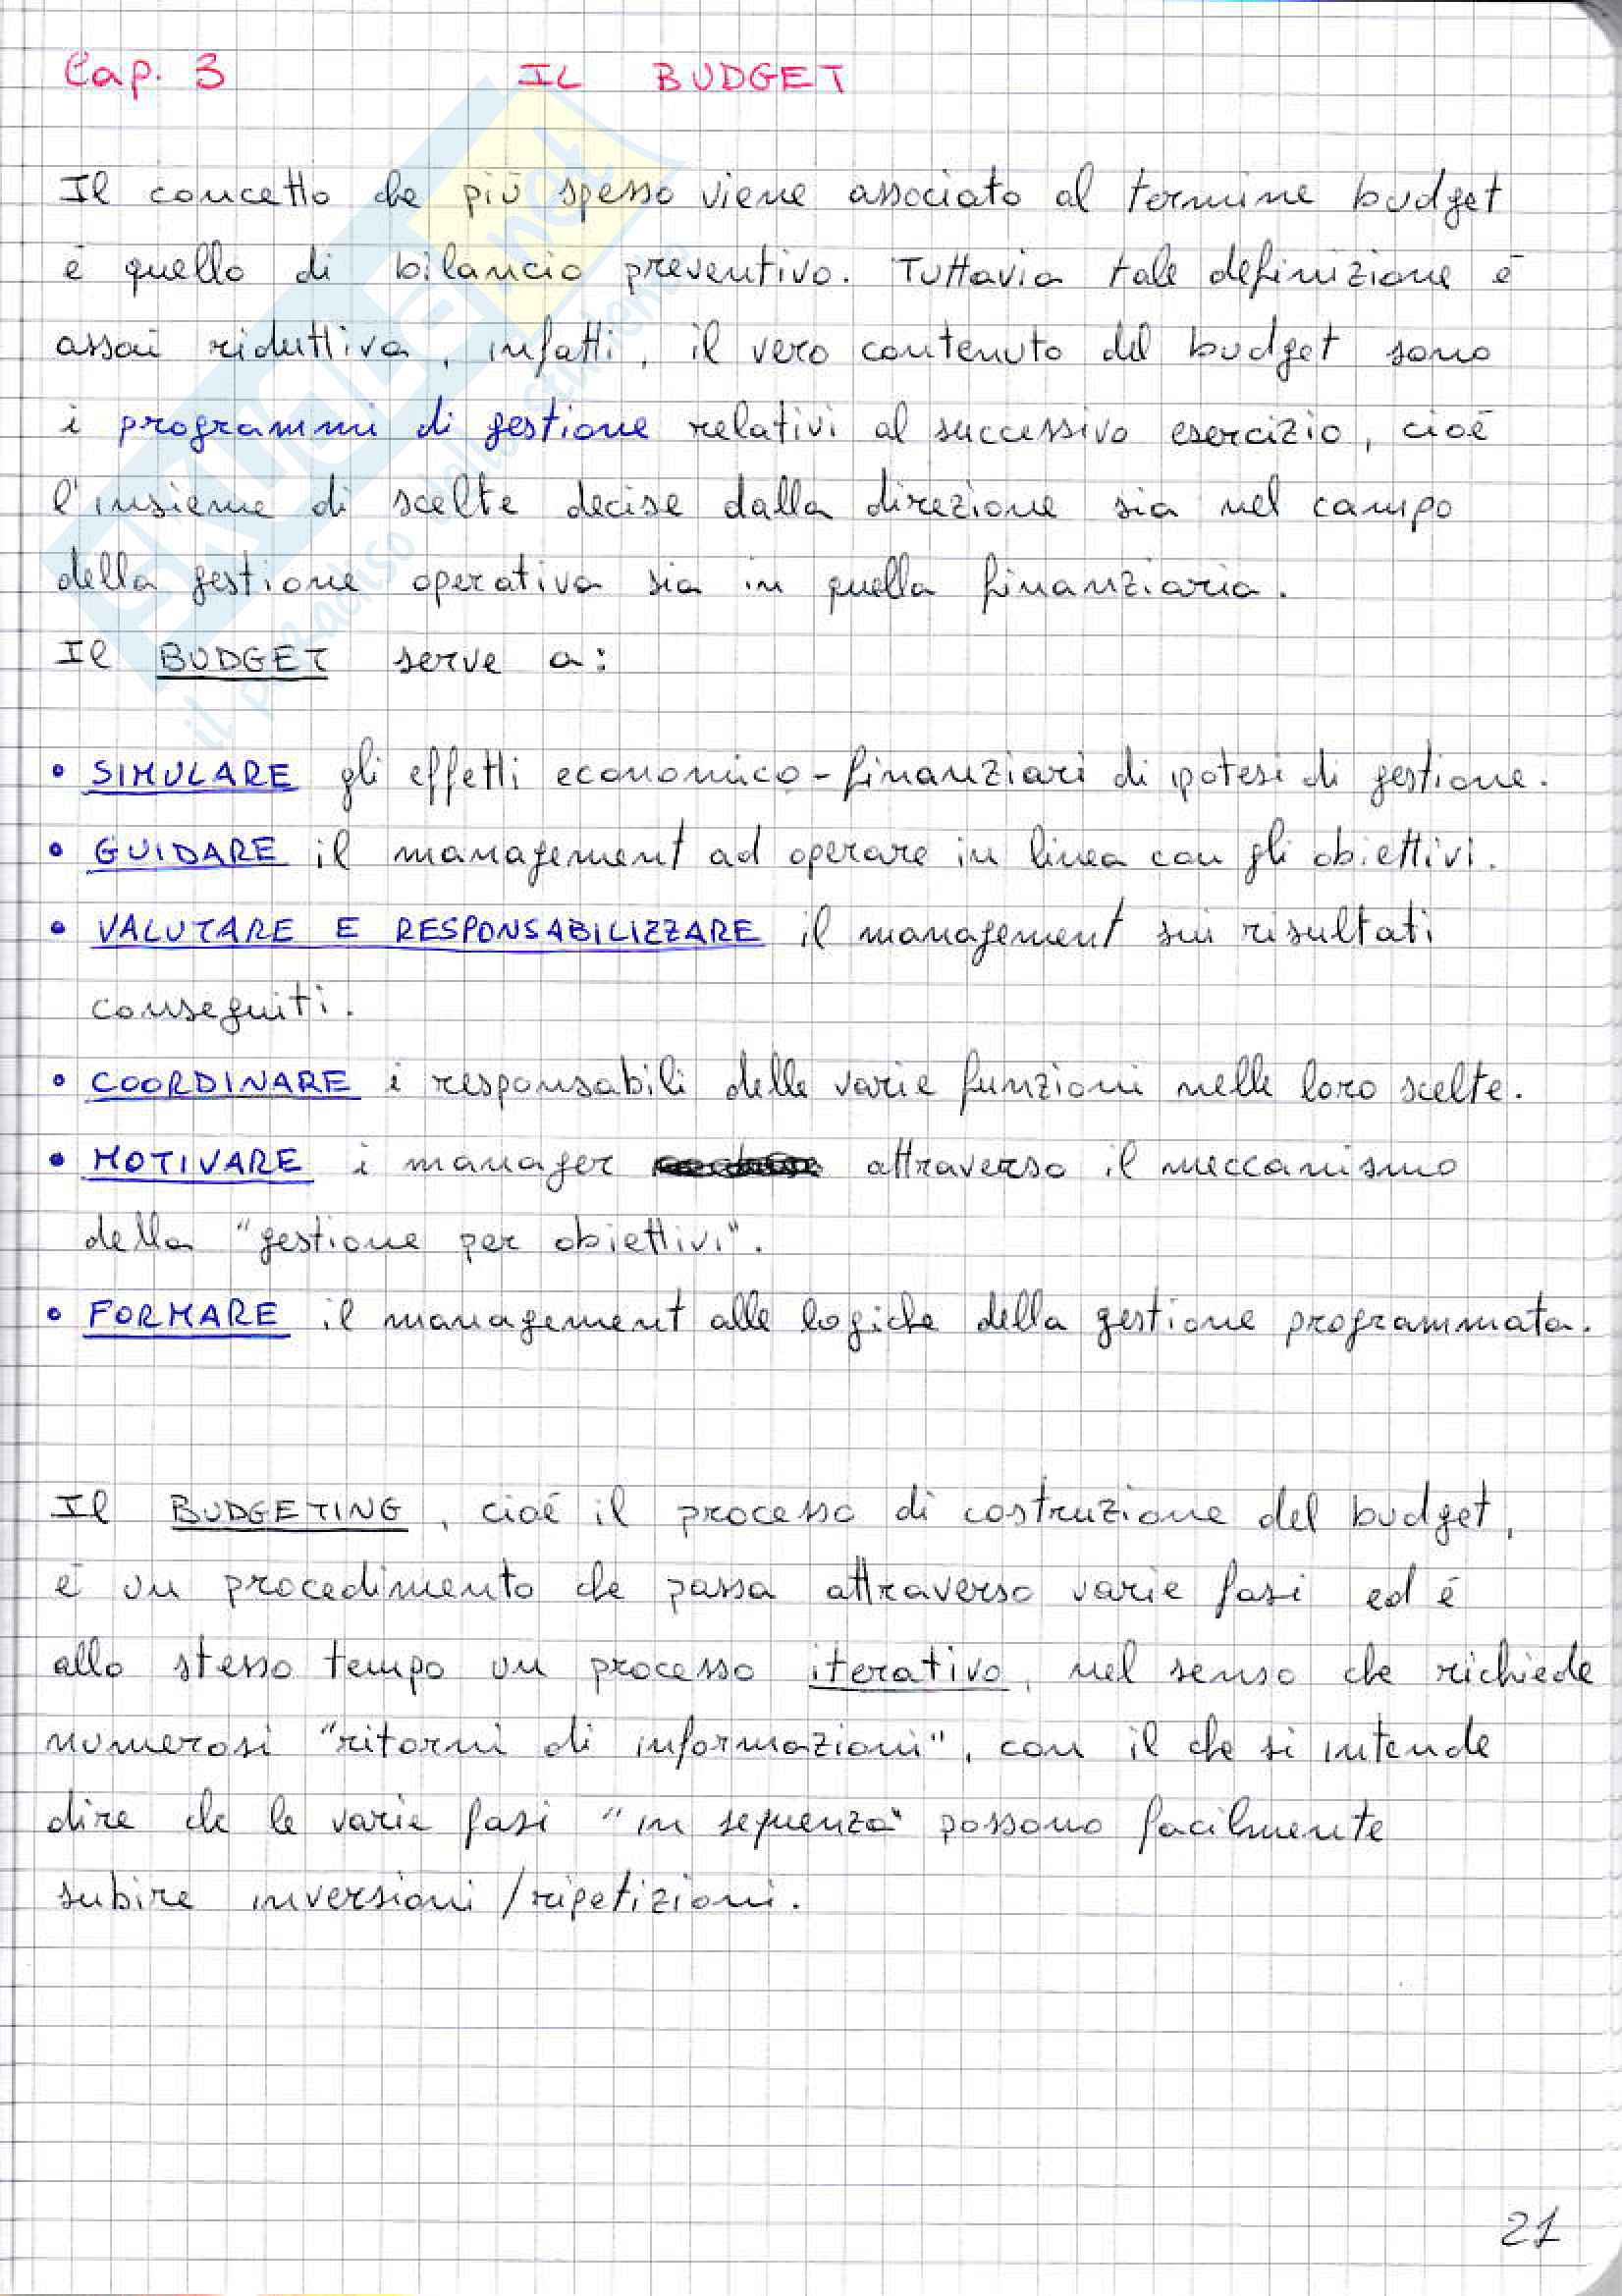 Cap. 3 IL BUDGET
Il concetto che più spesso viene associato al termine budget
è quello di bilancio preventivo. Tuttavia tale definizione è
assai riduttiva, infatti, il vero contenuto del budget sono
i programmi di gestione relativi al successivo esercizio, cioè
l'insieme di scelte decise dalla direzione sia nel campo
della gestione operativa sia in quella finanziaria.
Il BUDGET serve a:
• SIMULARE gli effetti economico-finanziari di ipotesi di gestione.
• GUIDARE il management ad operare in linea con gli obiettivi.
• VALUTARE E RESPONSABILIZZARE il management sui risultati
conseguiti.
• COORDINARE i responsabili delle varie funzioni nelle loro scelte.
• MOTIVARE i manager attraverso il meccanismo
della "gestione per obiettivi".
• FORMARE il management alle logiche della gestione programmata.
Il BUDGETING, cioè il processo di costruzione del budget,
è un procedimento che passa attraverso varie fasi ed è
allo stesso tempo un processo iterativo, nel senso che richiede
numerosi "ritorni di informazioni", con il che si intende
dire che le varie fasi "in sequenza" possono facilmente
subire inversioni/ripetizioni.
21
SKUOLA.net
il paradiso dello studente